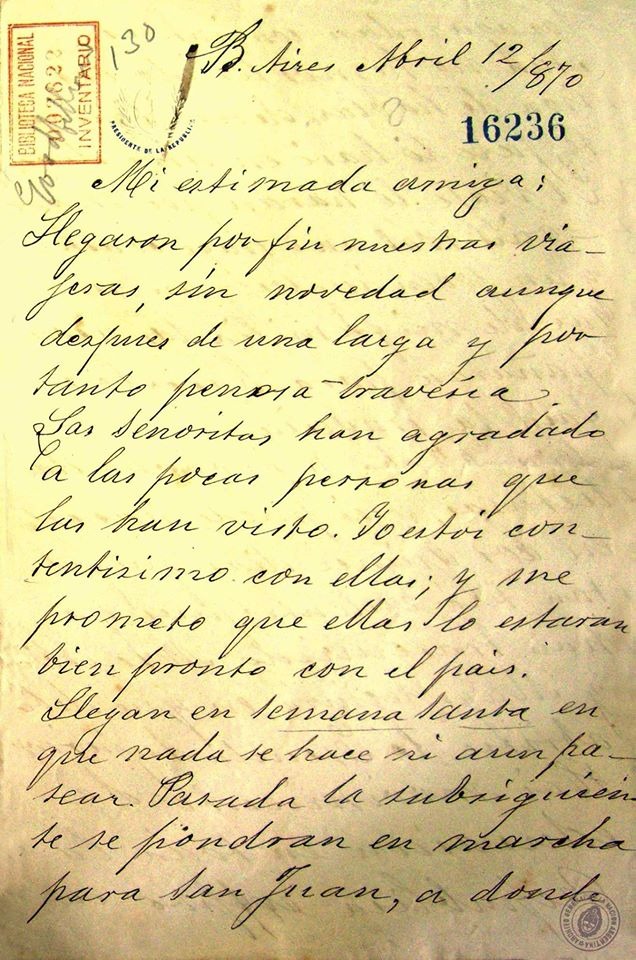 BIBLIOTECA NACIONAL
INVENTARIO
130
PRESIDENTE DE LA REPUBLICA
B. Aires Abril 12/870
16236
Mi estimada amiga:
Llegaron por fin nuestras via-
jeras, sin novedad aunque
despues de una larga y por
tanto penosa travesia.
Las señoritas han agradado
a las pocas personas que
las han visto. Yo estoi con-
tentisimo con ellas; y me
prometo que ellas lo estaran
bien pronto con el pais.
Llegan en semana santa en
que nada se hace ni aun pa-
sear. Pasada la subsiguien-
te se pondran en marcha
para San Juan, a donde